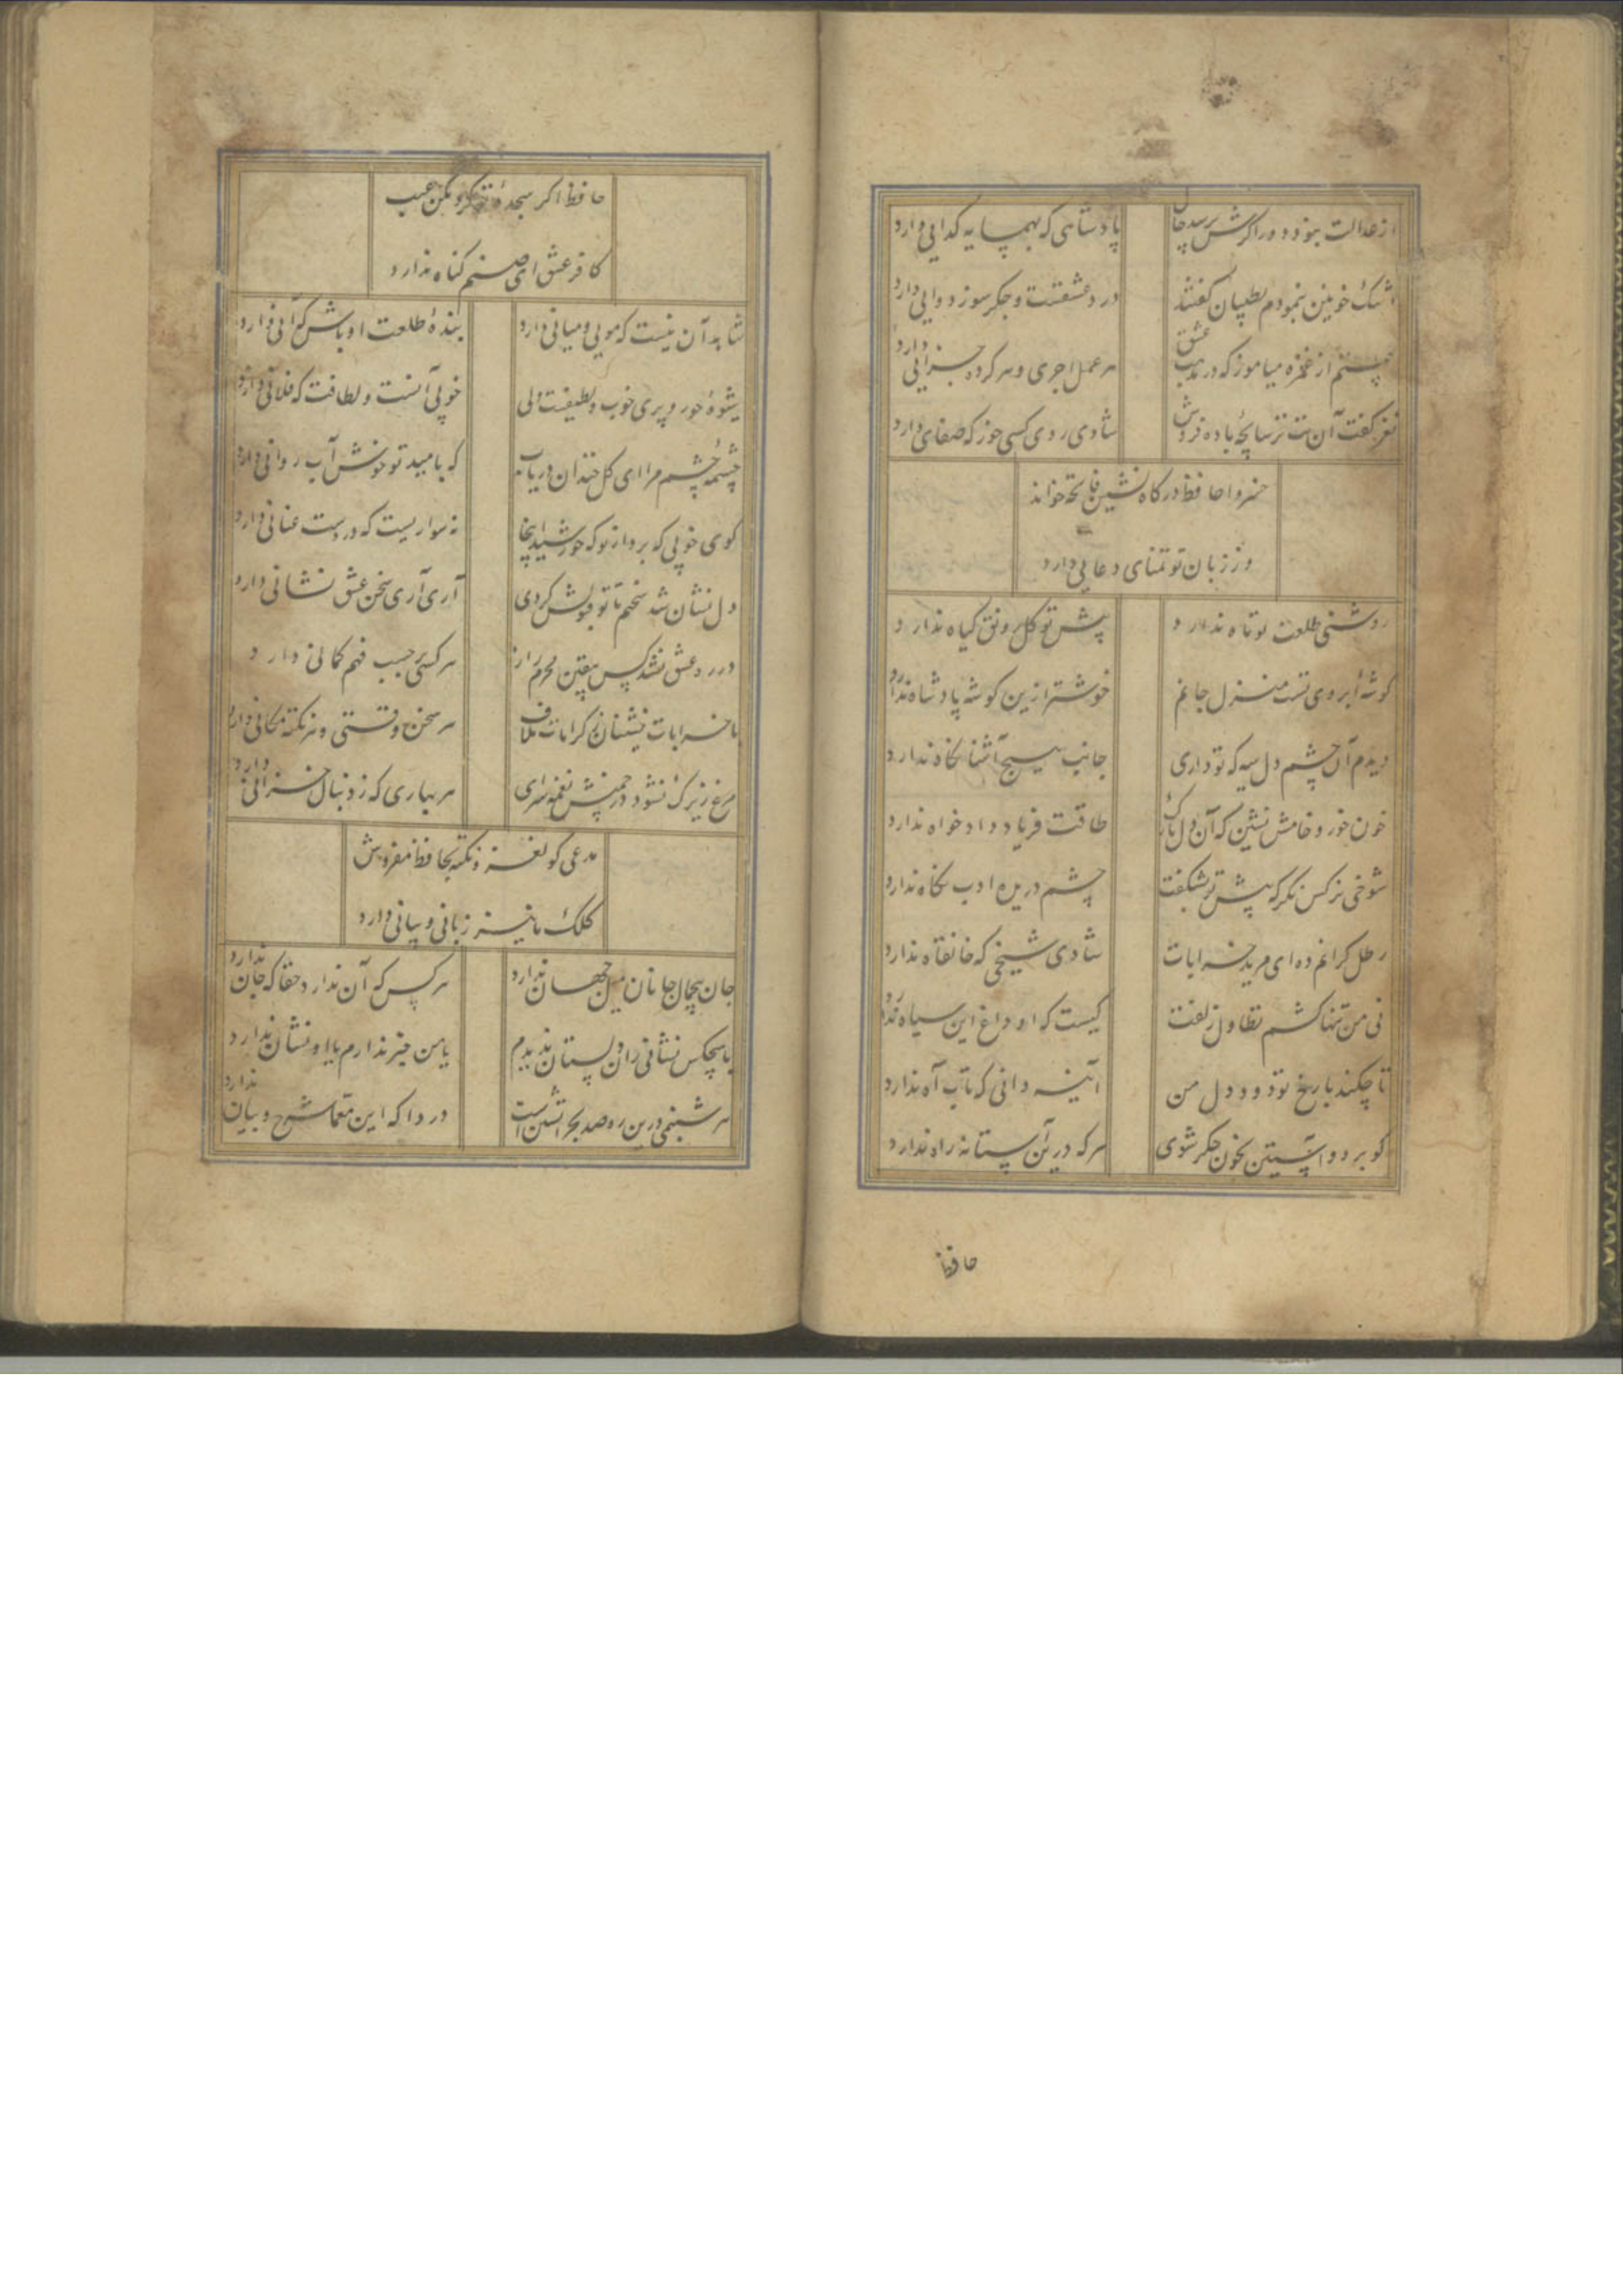 از عدالت نبود دور اکرش پرسد حال
پادشاهی که بهمسایه کدایی دارد
اشک خونین بنمودم بطبیبان کفتند
درد عشقست و جکر سوز دوایی دارد
ستم از غمزه میاموز که در مذهب عشق
هر عمل اجری و هر کرده جزایی دارد
نغز کفت آن بت ترسابچهٔ باده فروش
شادی روی کسی خور که صفایی دارد
خسروا حافظ درکاه نشین فاتحه خواند
وز زبان تو تمنای دعایی دارد
روشنی طلعت تو ماه ندارد
پیش تو کل رونق کیاه ندارد
کوشهٔ ابروی تست منزل جانم
خوشتر ازین کوشه پادشاه ندارد
دیدم آن چشم دل سیه که تو داری
جانب هیچ آشنا نکاه ندارد
خون خور و خامش نشین که آن دل نازک
طاقت فریاد دادخواه ندارد
شوخی نرکس نکر که پیش تو بشکفت
چشم دریده ادب نکاه ندارد
رطل کرانم ده ای مرید خرابات
شادی شیخی که خانقاه ندارد
نی من تنها کشم تطاول زلفت
کیست که او داغ این سیاه ندارد
تا چکند با رخ تو دود دل من
آینه دانی که تاب آه ندارد
کو برو و آستین بخون جکر شوی
هر که درین آستانه راه ندارد
حافظ
حافظ اکر سجدهٔ تو کرد مکن عیب
کافر عشق ای صنم کناه ندارد
شاهد آن نیست که مویی و میانی دارد
بندهٔ طلعت او باش که آنی دارد
شیوهٔ حور و پری خوب و لطیفست ولی
خوبی آنست و لطافت که فلانی دارد
چشمهٔ چشم مرا ای کل خندان دریاب
که بامید تو خوش آب روانی دارد
کوی خوبی که برد از تو که خورشید اینجا
نه سواریست که در دست عنانی دارد
دل نشان شد سخنم تا تو قبولش کردی
آری آری سخن عشق نشانی دارد
در ره عشق نشد کس بیقین محرم راز
هر کسی بر حسب فهم کمانی دارد
با خرابات نشینان ز کرامات ملاف
هر سخن وقتی و هر نکته مکانی دارد
مرغ زیرک نشود در چمنش نغمه سرای
هر بهاری که ز دنبال خزانی دارد
مدعی کو لغز و نکته بحافظ مفروش
کلک ما نیز زبانی و بیانی دارد
جان بی جمال جانان میل جهان ندارد
هر کس که آن ندارد حقا که جان ندارد
با هیچکس نشانی زان دلستان ندیدم
یا من خبر ندارم یا او نشان ندارد
هر شبنمی درین ره صد بحر آتشین است
دردا که این معما شرح و بیان ندارد